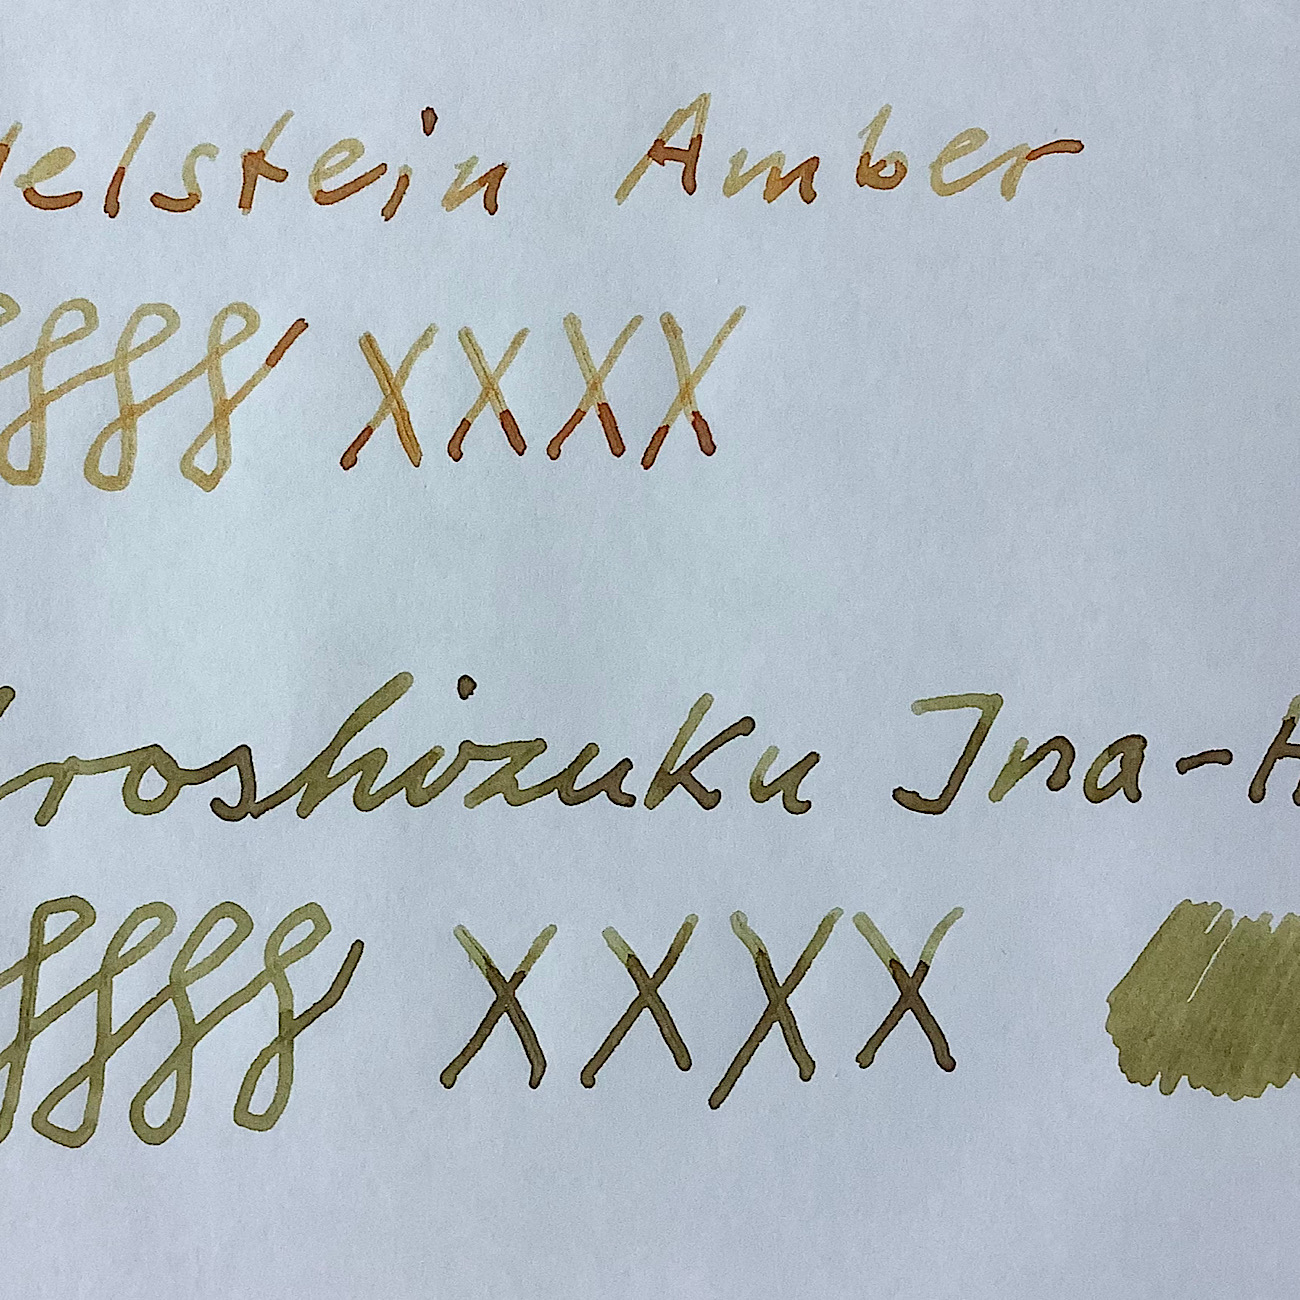 delstein Amber
xxxx
iroshizuku Ina-H
xxxx